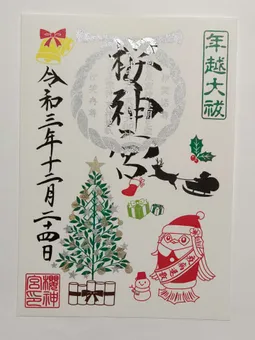 年越大祓
櫻神宮
令和三年十二月二十四日
櫻神
宮印